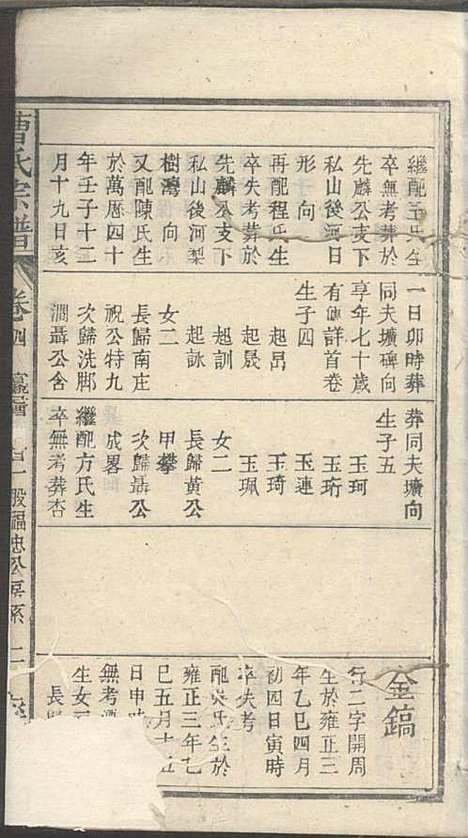 繼配王氏生
卒無考葬於
先麟公支下
私山後河日
形向
再配程氏生
卒失考葬於
先麟公支下
私山後河梨
樹灣向
又配陳氏生
於萬厯四十
年壬子十二
月十九日亥
一日卯時葬
同夫壙碑向
享年七十歲
有傳詳首卷
生子四
起昂
起晟
起訓
起詠
女二
長歸南庄
祝公特九
次歸洗脚
澗聶公含
葬同夫壙向
生子五
玉珂
玉珩
玉連
玉琦
玉珮
女二
長歸黃公
甲攀
次歸聶公
成畧
繼配方氏生
卒無考葬杏
金鎬
行二字開周
生於雍正三
年乙巳四月
初四日寅時
卒失考
配吳氏生於
雍正三年乙
巳五月十五
日申時
無考
生女
長
曹氏宗譜
卷四
股福忠公房系
二